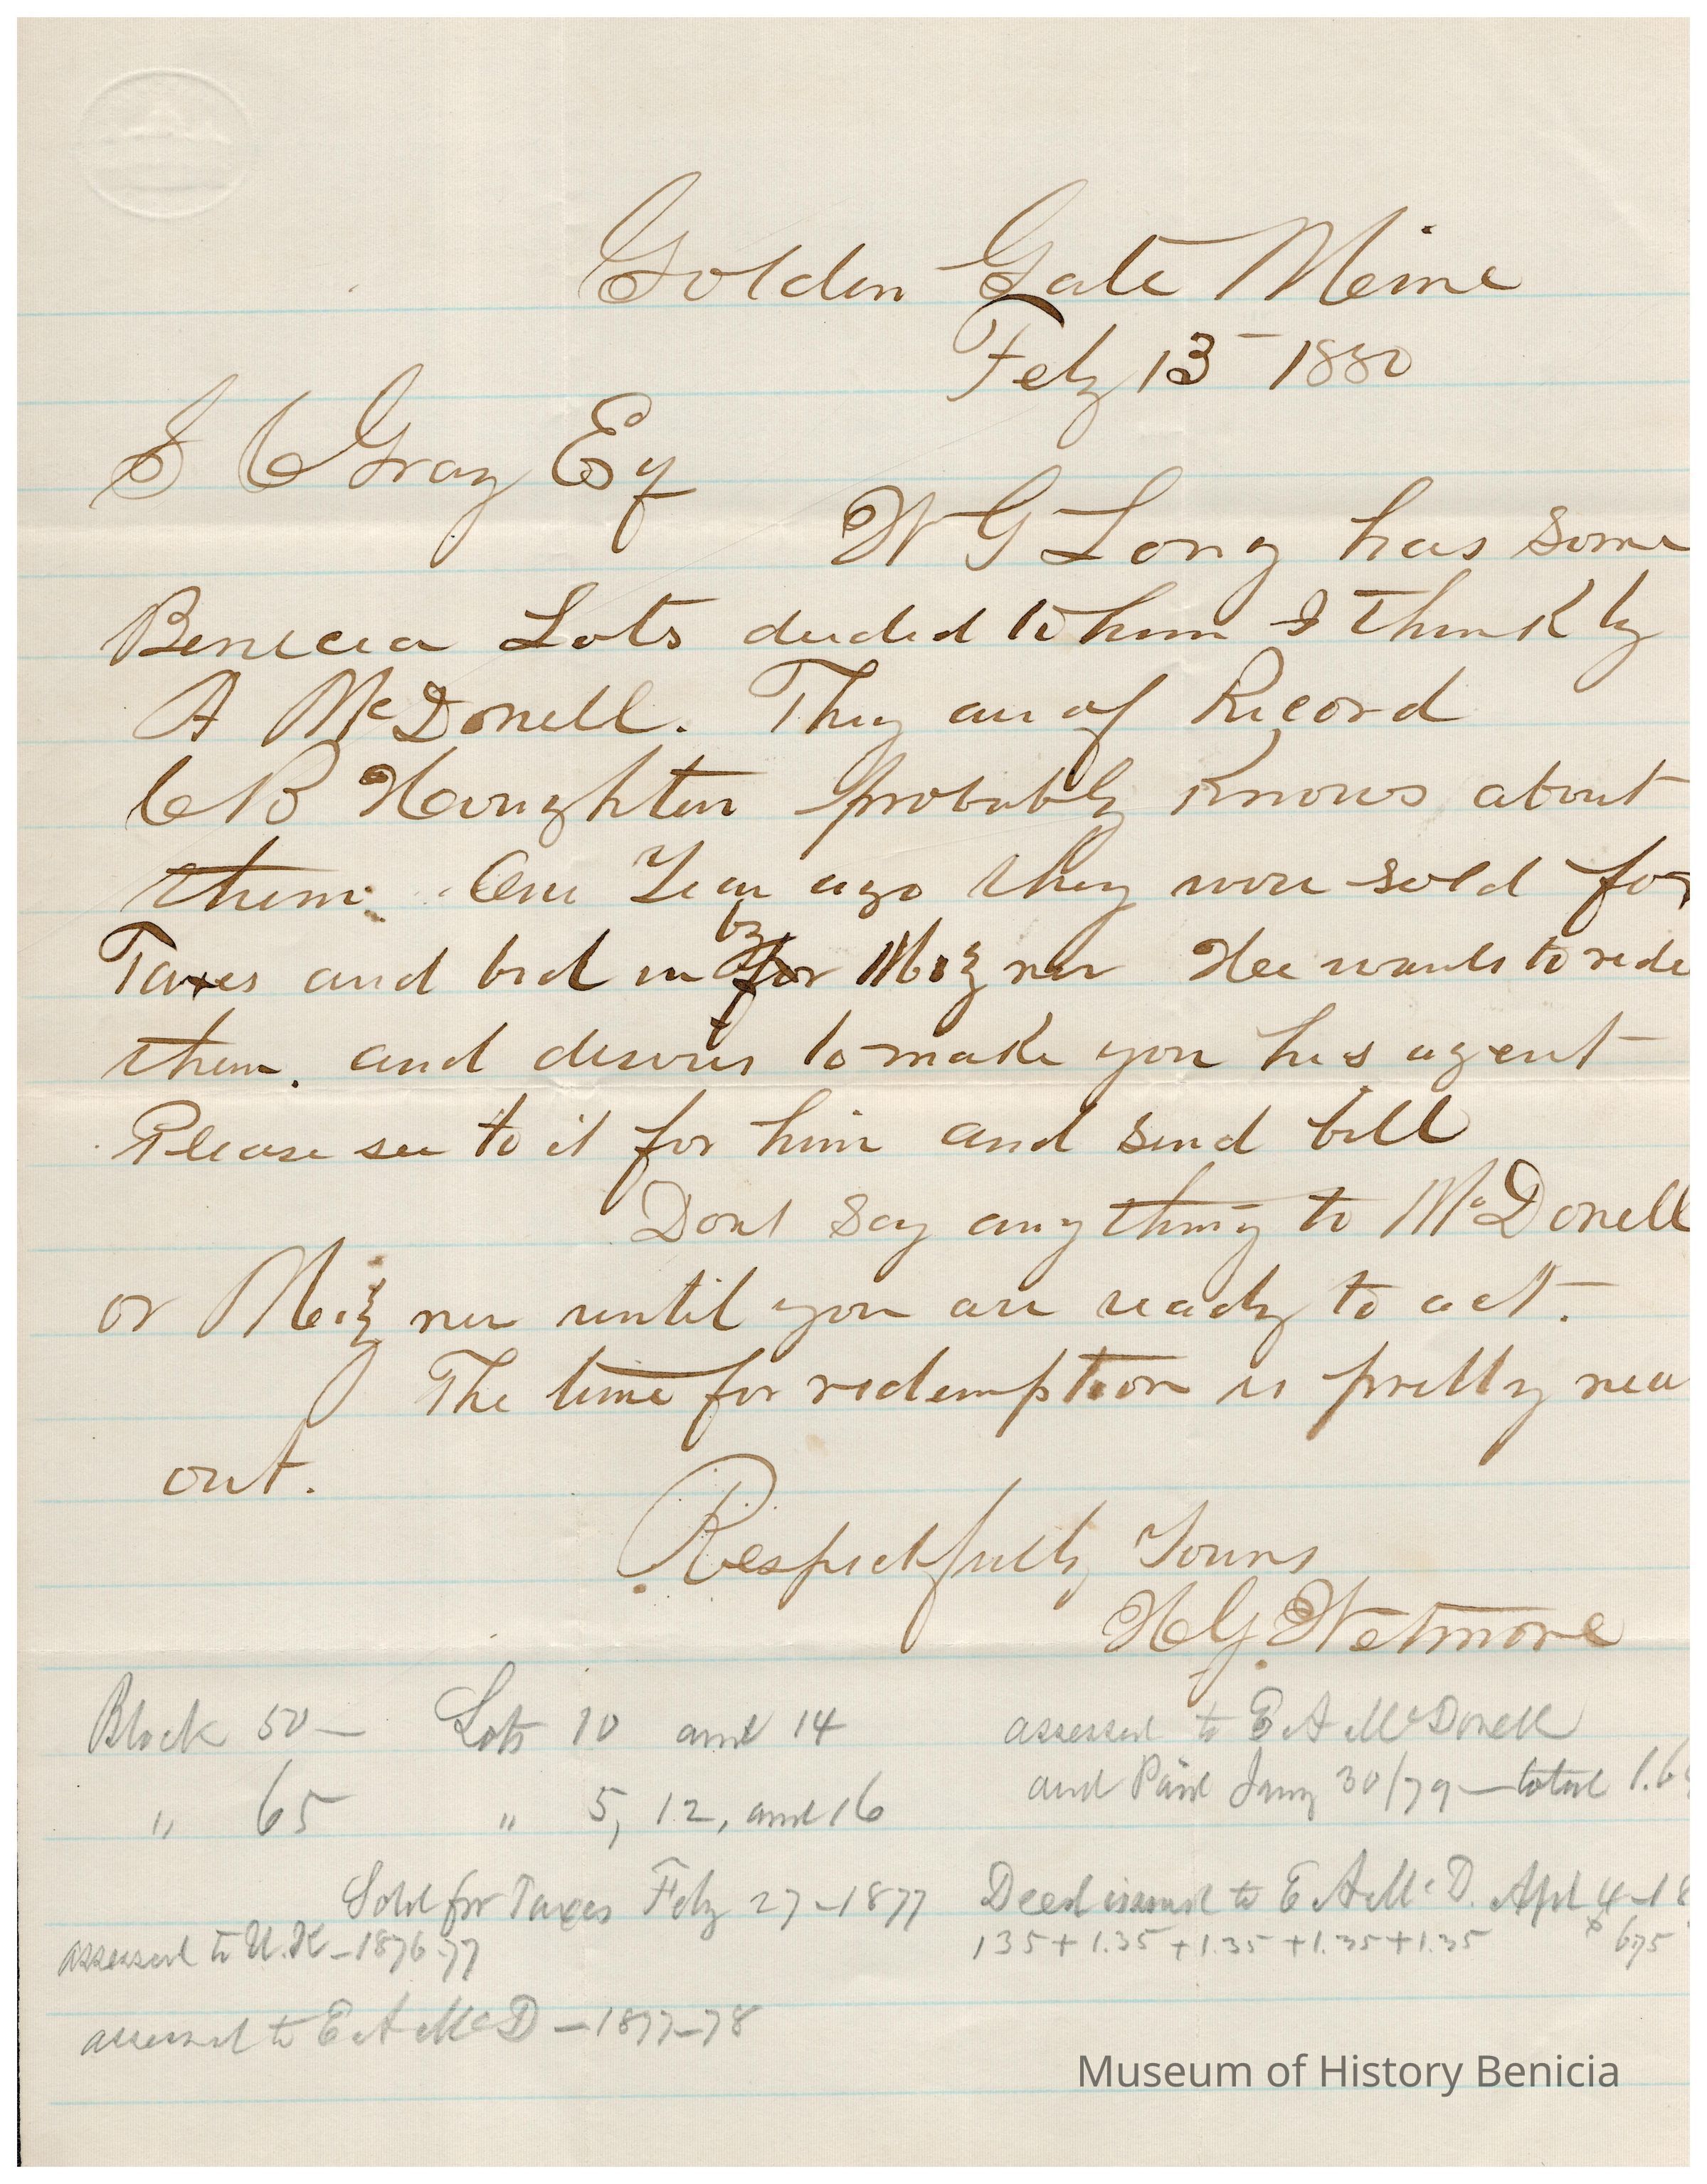 Golden Gate Mine
Feby 13 - 1880
S C Gray Esq
W G Long has some
Benicia Lots deeded to him I think by
A McDonell. They are of Record
C B Houghton probably knows about
them. One Year ago they were sold for
by
Taxes and bid in for Mizner Hee wants to rede
them. and desires to make you his agent
Please see to it for him and send bill
Dont say anything to McDonell
or Mizner until you are ready to act.
The time for redemption is pretty near
out.
Respectfully Yours
H G. Wetmore
Block 50 — Lots 10 and 14 assessed to E A McDonell
and Paid Jany 30/79 — total 1.6
" 65 " 5, 12, and 16
Sold for Taxes Feby 27 - 1877 Deed issued to E A McD. Apl 4 - 18
assessed to U.K - 1876-77 135 + 1.35 + 1.35 + 1.35 + 1.35 $ 675
assessed to E A McD — 1877-78
Museum of History Benicia